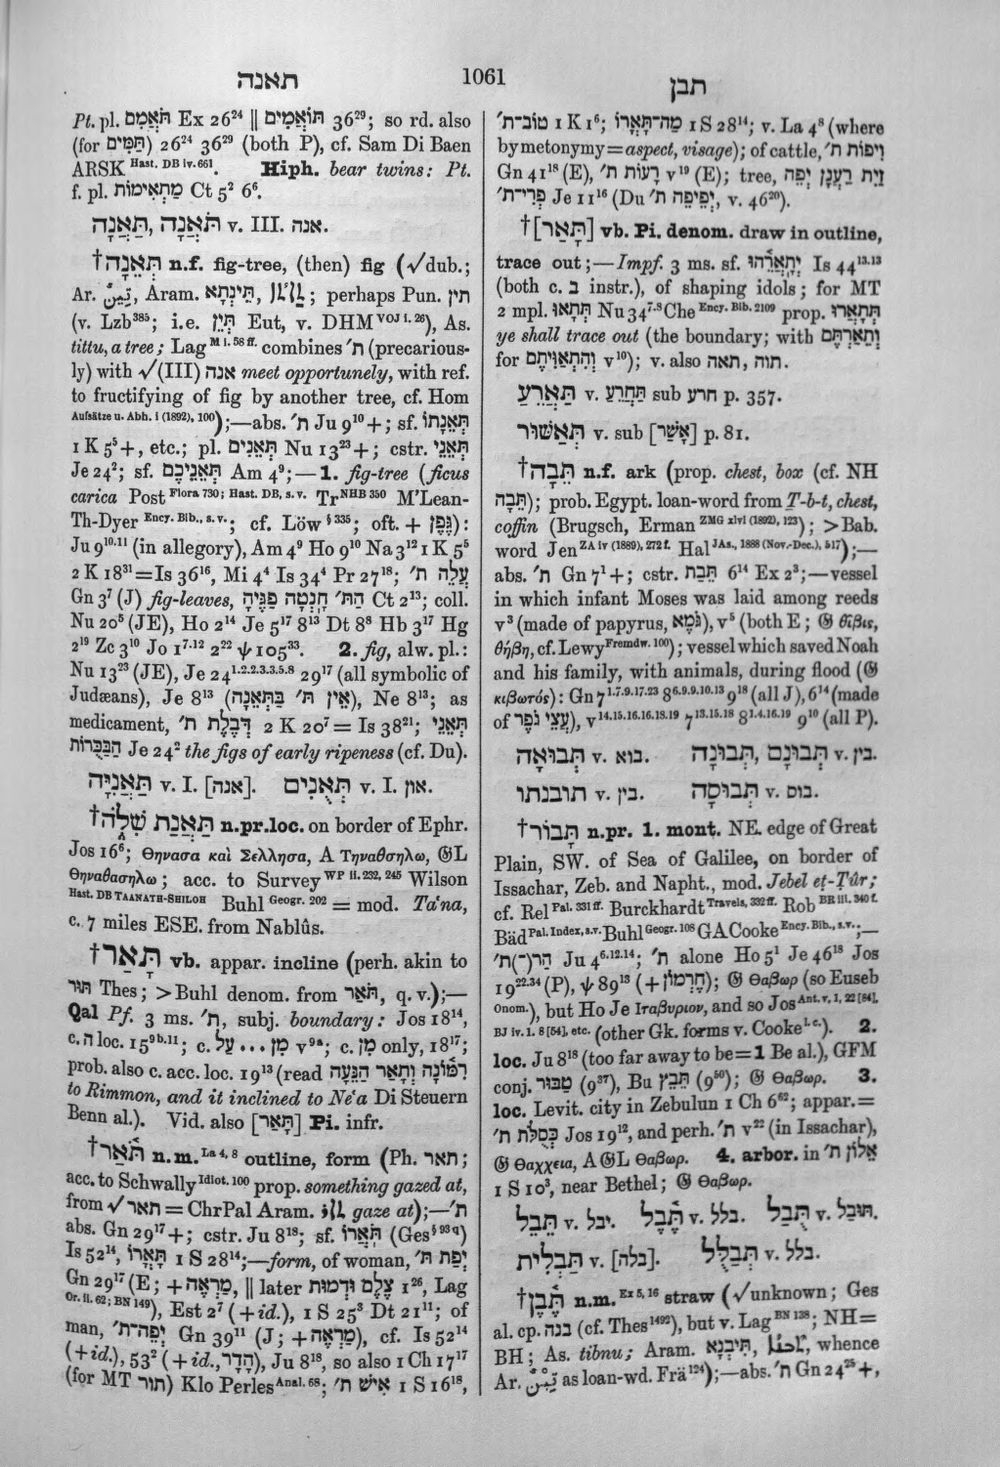 תאנה
1061
תבן
Pt. pl. תֹּאֲמִם Ex 26²⁴ ‖ תּוֹאֲמִים 36²⁹; so rd. also
(for תַּמִּים) 26²⁴ 36²⁹ (both P), cf. Sam Di Baen
ARSK Hast. DB iv. 661. Hiph. bear twins: Pt.
f. pl. מַתְאִימוֹת Ct 5² 6⁶.
תַּאֲנָה, תֹּאֲנָה v. III. אנה.
†תְּאֵנָה n.f. fig-tree, (then) fig (√dub.;
Ar. تِينٌ, Aram. תֵּינְתָא, ; perhaps Pun. תין
(v. Lzb³⁸⁵; i.e. תַּיִן Eut, v. DHM VOJ i. 26), As.
tittu, a tree; Lag M i. 58 ff. combines ת׳ (precarious-
ly) with √(III) אנה meet opportunely, with ref.
to fructifying of fig by another tree, cf. Hom
Aufsätze u. Abh. i (1892), 100);—abs. ת׳ Ju 9¹⁰+; sf. תְּאֵנָתוֹ
1 K 5⁵+, etc.; pl. תְּאֵנִים Nu 13²³+; cstr. תְּאֵנֵי
Je 24²; sf. תְּאֵנֵיכֶם Am 4⁹;—1. fig-tree (ficus
carica Post Flora 730; Hast. DB, s. v. Tr NHB 350 M'Lean-
Th-Dyer Ency. Bib., s. v.; cf. Löw § 335; oft. + גֶּפֶן):
Ju 9¹⁰·¹¹ (in allegory), Am 4⁹ Ho 9¹⁰ Na 3¹² 1 K 5⁵
2 K 18³¹=Is 36¹⁶, Mi 4⁴ Is 34⁴ Pr 27¹⁸; עֲלֵה ת׳
Gn 3⁷ (J) fig-leaves, הַתּ׳ חָנְטָה פַגֶּיהָ Ct 2¹³; coll.
Nu 20⁵ (JE), Ho 2¹⁴ Je 5¹⁷ 8¹³ Dt 8⁸ Hb 3¹⁷ Hg
2¹⁹ Zc 3¹⁰ Jo 1⁷·¹² 2²² ψ 105³³. 2. fig, alw. pl.:
Nu 13²³ (JE), Je 24¹·²·²·³·³·⁵·⁸ 29¹⁷ (all symbolic of
Judæans), Je 8¹³ (אֵין תּ׳ בַּתְּאֵנָה), Ne 8¹³; as
medicament, דְּבֶלֶת ת׳ 2 K 20⁷ = Is 38²¹; תְּאֵנֵי
הַבַּכֻּרוֹת Je 24² the figs of early ripeness (cf. Du).
תַּאֲנִיָּה v. I. [אנה]. תְּאֻנִים v. I. און.
†תַּאֲנַת שִׁלֹה n.pr.loc. on border of Ephr.
Jos 16⁶; Θηνασα καὶ Σελλησα, A Τηναθσηλω, 𝔊L
Θηναθασηλω; acc. to Survey WP ii. 232, 245 Wilson
Hast. DB TAANATH-SHILOH Buhl Geogr. 202 = mod. Taʿna,
c. 7 miles ESE. from Nablûs.
†תָּאַר vb. appar. incline (perh. akin to
תּוּר Thes; >Buhl denom. from תֹּאַר, q. v.);—
Qal Pf. 3 ms. ת׳, subj. boundary: Jos 18¹⁴,
c. ה loc. 15⁹ᵇ·¹¹; c. מִן ... עַל v⁹ᵃ; c. מִן only, 18¹⁷;
prob. also c. acc. loc. 19¹³ (read רִמּוֹנָה וְתָאַר הַנֵּעָה
to Rimmon, and it inclined to Ne‘a Di Steuern
Benn al.). Vid. also [תָּאַר] Pi. infr.
†תֹּאַר n.m. La 4, 8 outline, form (Ph. תאר;
acc. to Schwally Idiot. 100 prop. something gazed at,
from √תאר = ChrPal Aram. gaze at);—ת׳
abs. Gn 29¹⁷+; cstr. Ju 8¹⁸; sf. תֹּאֲרוֹ (Ges § 93 q)
Is 52¹⁴, תָּאֳרוֹ 1 S 28¹⁴;—form, of woman, יְפַת תּ׳
Gn 29¹⁷ (E; +מַרְאֶה, ‖ later צֶלֶם וּדְמוּת 1²⁶, Lag
Or. ii. 62; BN 149), Est 2⁷ (+id.), 1 S 25³ Dt 21¹¹; of
man, יְפֵה־ת׳ Gn 39¹¹ (J; +מַרְאֶה), cf. Is 52¹⁴
(+id.), 53² (+id., הָדָר), Ju 8¹⁸, so also 1 Ch 17¹⁷
(for MT תור) Klo Perles Anal. 68; אִישׁ ת׳ 1 S 16¹⁸,
טוֹב־ת׳ 1 K 1⁶; מַה־תָּאֳרוֹ 1 S 28¹⁴; v. La 4⁸ (where
by metonymy=aspect, visage); of cattle, וִיפוֹת ת׳
Gn 41¹⁸ (E), רָעוֹת ת׳ v¹⁹ (E); tree, זַיִת רַעֲנָן יְפֵה
פְרִי־ת׳ Je 11¹⁶ (Du יְפֵיפֵה ת׳, v. 46²⁰).
†[תָּאַר] vb. Pi. denom. draw in outline,
trace out;—Impf. 3 ms. sf. יְתָאֲרֵהוּ Is 44¹³·¹³
(both c. בְּ instr.), of shaping idols; for MT
2 mpl. תְּתָאוּ Nu 34⁷·⁸ Che Ency. Bib. 2109 prop. תְּתָאֲרוּ
ye shall trace out (the boundary; with וְתֵאַרְתֶּם
for וְהִתְאַוִּיתֶם v¹⁰); v. also תאה, תוה.
תַּאֲרֵעַ v. תַּחֲרֵעַ sub חרע p. 357.
תְּאַשּׁוּר v. sub [אָשֻׁר] p. 81.
†תֵּבָה n.f. ark (prop. chest, box (cf. NH
תֵּבָה); prob. Egypt. loan-word from T-b-t, chest,
coffin (Brugsch, Erman ZMG xlvi (1892), 123); >Bab.
word Jen ZA iv (1889), 272 f. Hal JAs., 1888 (Nov.-Dec.), 517);—
abs. ת׳ Gn 7¹+; cstr. תֵּבַת 6¹⁴ Ex 2³;—vessel
in which infant Moses was laid among reeds
v³ (made of papyrus, גֹּמֶא), v⁵ (both E; 𝔊 θῖβις,
θήβη, cf. Lewy Fremdw. 100); vessel which saved Noah
and his family, with animals, during flood (𝔊
κιβωτός): Gn 7¹·⁷·⁹·¹⁷·²³ 8⁶·⁹·⁹·¹⁰·¹³ 9¹⁸ (all J), 6¹⁴ (made
of עֲצֵי גֹפֶר), v¹⁴·¹⁵·¹⁶·¹⁶·¹⁸·¹⁹ 7¹³·¹⁵·¹⁸ 8¹·⁴·¹⁶·¹⁹ 9¹⁰ (all P).
תְּבוּאָה v. בוא. תְּבוּנָם, תְּבוּנָה v. בין.
תובנתו v. בין. תְּבוּסָה v. בוס.
†תָּבוֹר n.pr. 1. mont. NE. edge of Great
Plain, SW. of Sea of Galilee, on border of
Issachar, Zeb. and Napht., mod. Jebel eṭ-Ṭûr;
cf. Rel Pal. 331 ff. Burckhardt Travels, 332 ff. Rob BR iii. 340 f.
Bäd Pal. Index, s.v. Buhl Geogr. 108 GACooke Ency. Bib., s.v.;—
הַר(־)תּ׳ Ju 4⁶·¹²·¹⁴; ת׳ alone Ho 5¹ Je 46¹⁸ Jos
19²²·³⁴ (P), ψ 89¹³ (+חֶרְמוֹן); 𝔊 Θαβωρ (so Euseb
Onom.), but Ho Je Ιταβυριον, and so Jos Ant. v. 1, 22 [84],
BJ iv. 1. 8 [54], etc. (other Gk. forms v. Cooke l. c.). 2.
loc. Ju 8¹⁸ (too far away to be=1 Be al.), GFM
conj. טַבּוּר (9³⁷), Bu תֵּבֵץ (9⁵⁰); 𝔊 Θαβωρ. 3.
loc. Levit. city in Zebulun 1 Ch 6⁶²; appar.=
כִּסְלֹת ת׳ Jos 19¹², and perh. ת׳ v²² (in Issachar),
𝔊 Θαχχεια, A 𝔊L Θαβωρ. 4. arbor. in אֵלוֹן ת׳
1 S 10³, near Bethel; 𝔊 Θαβωρ.
תֵּבֵל v. יבל. תֶּבֶל v. בלל. תֻּבַל v. תּוּבַל.
תַּבְלִית v. [בלה]. תְּבַלֻּל v. בלל.
†תֶּבֶן n.m. Ex 5, 16 straw (√unknown; Ges
al. cp. בנה (cf. Thes¹⁴⁹²), but v. Lag BN 138; NH=
BH; As. tibnu; Aram. תִּיבְנָא, , whence
Ar. تِبْنٌ as loan-wd. Frä¹²⁴);—abs. ת׳ Gn 24²⁵+,